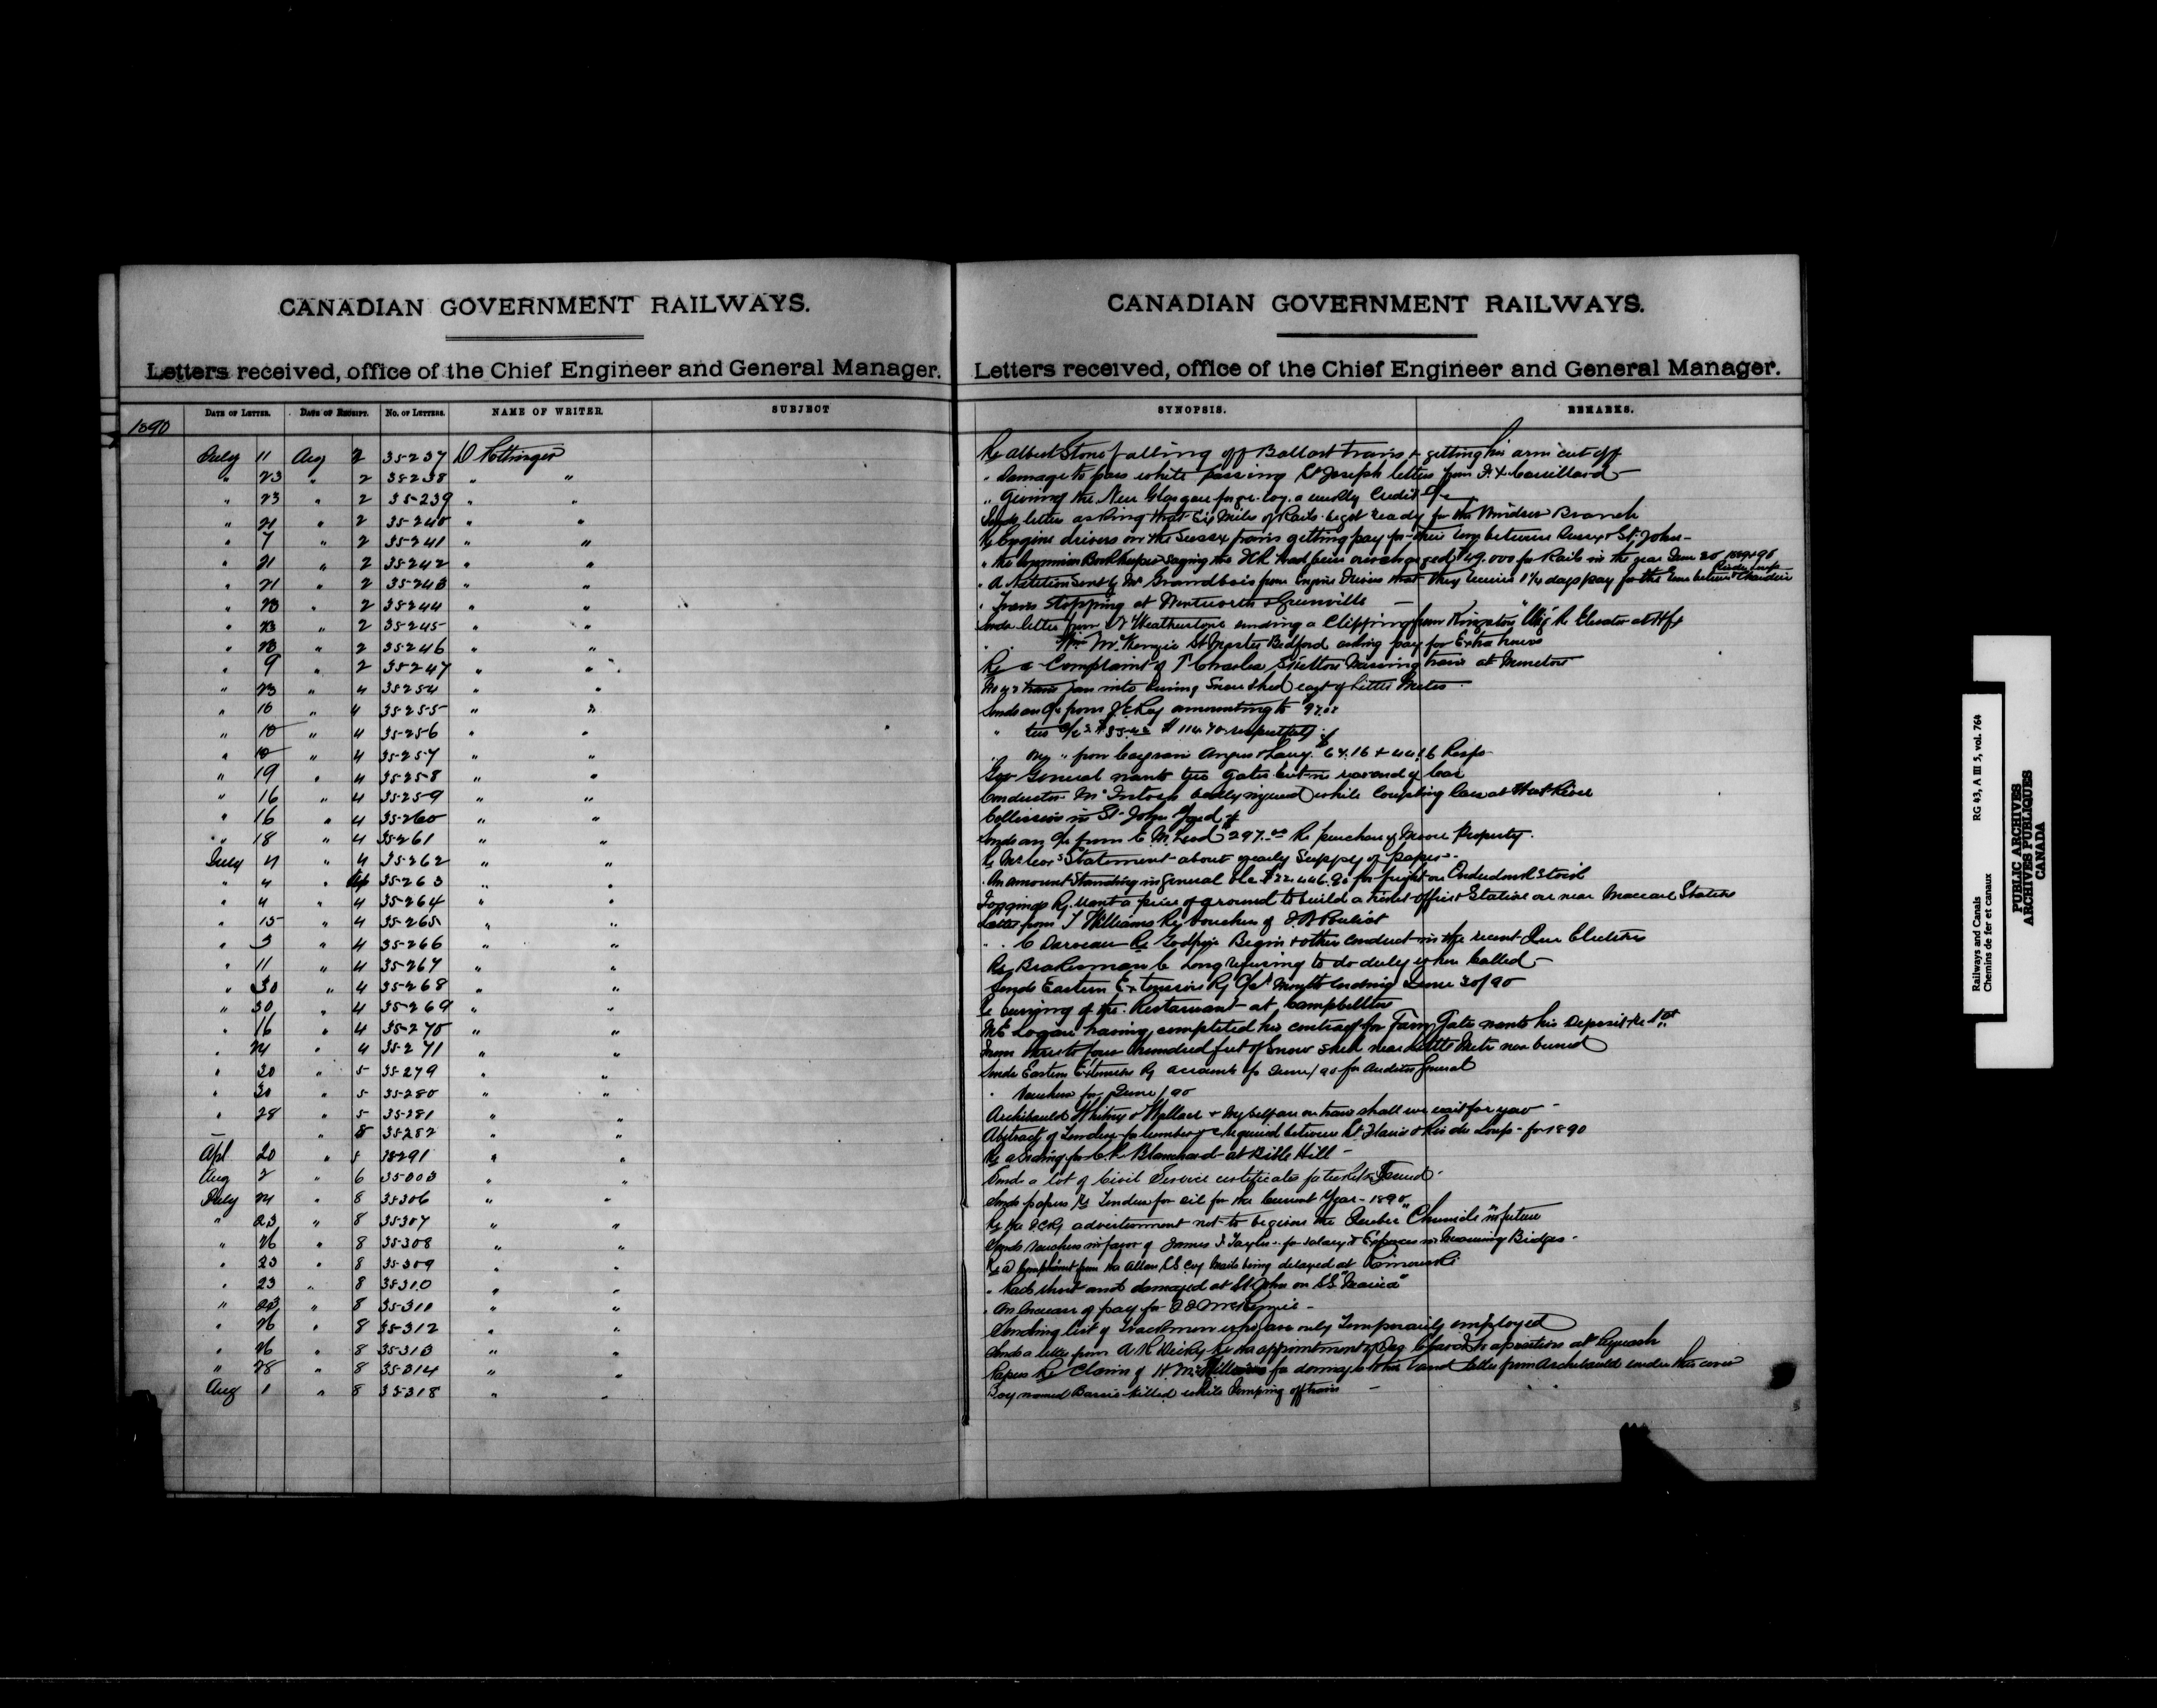 CANADIAN GOVERNMENT RAILWAYS.
Letters received, office of the Chief Engineer and General Manager.
DATE OF LETTER. DATE OF RECEIPT. No. OF LETTERS. NAME OF WRITER. SUBJECT
1890
July 11 Aug 2 35237 D Pottinger
" 23 " 2 35238 " "
" 23 " 2 35239 " "
" 21 " 2 35240 " "
" 7 " 2 35241 " "
" 21 " 2 35242 " "
" 21 " 2 35243 " "
" 23 " 2 35244 " "
" 23 " 2 35245 " "
" 23 " 2 35246 " "
" 9 " 2 35247 " "
" 23 " 4 35254 " "
" 16 " 4 35255 " "
" 10 " 4 35256 " "
" 10 " 4 35257 " "
" 19 " 4 35258 " "
" 16 " 4 35259 " "
" 16 " 4 35260 " "
" 18 " 4 35261 " "
July 4 " 4 35262 " "
" 4 " 35263 " "
" 4 " 4 35264 " "
" 15 " 4 35265 " "
" 3 " 4 35266 " "
" 11 " 4 35267 " "
" 30 " 4 35268 " "
" 30 " 4 35269 " "
" 16 " 4 35270 " "
" 24 " 4 35271 " "
" 30 " 5 35279 " "
" 30 " 5 35280 " "
" 28 " 5 35281 " "
— " 5 35282 " "
Apl 20 " 5 35291 " "
Aug 2 " 6 35303 " "
July 24 " 8 35306 " "
" 23 " 8 35307 " "
" 26 " 8 35308 " "
" 23 " 8 35309 " "
" 23 " 8 35310 " "
" 23 " 8 35311 " "
" 26 " 8 35312 " "
" 26 " 8 35313 " "
" 28 " 8 35314 " "
Aug 1 " 8 35318 " "
CANADIAN GOVERNMENT RAILWAYS.
Letters received, office of the Chief Engineer and General Manager.
SYNOPSIS. REMARKS.
Re Albert Stone falling off Ballast train & getting his arm cut off
" Damage to pass while passing St Joseph letters from F.X. Couillard —
" Giving the New Glasgow forge Coy. a weekly Credit a/c
Sends letter asking that Six Miles of Rails be got ready for the Windsor Branch
Re Engine drivers on the Sussex trains getting pay for their time between Sussex & St John —
" the Commission Bookkeeper saying the ICR had been overcharged $49.000 for Rails in the year June 30 1889 & 90
" A Petition sent by Mr Grandbois from Engine Drivers that they receive 1¼ days pay for the time between Riv du Loup & Chaudiere
" Trains stopping at Wentworth & Greenville —
Sends letter from Weatherston sending a Clipping from Kingston "Whig" Re Elevator at Hfx
" " Wm McKenzie St Master Bedford asking pay for Extra hours
Re a Complaint of T Charles Skelton Missing train at Moncton
No 42 train ran into burning Snow Shed east of Little Metis
Sends an a/c from amounting to
" two a/cs respectfully
" " from Angus & 64.16 & 44.16 Resp
Gov General wants two Gates in rear end of car
Conductor McIntosh badly injured while Coupling Cars at West River
Collision in St. John Yard
Sends an a/c from E McLeod $297.00 Re purchase of Moore Property.
Statement about yearly Supply of paper
" An amount Standing in General a/c $22.446.90 for freight on
Joggins Ry. want a piece of ground to build a ticket office & Station on near Maccan Station
Letter from T Williams Re vouchers of Pouliot
" " C Darveau Re Godfroi Begin & other conduct in the recent Elections
Re Brakeman C Long refusing to do duty when called —
Sends Eastern Extension Ry a/cs Month ending June 30/90
Re burning of the Restaurant at Campbellton
Mr E Logan having completed his contract for Farm Gates wants his Deposit
From three to four hundred feet of Snow Shed near Little Metis now burned
Sends Eastern Extension Ry accounts for June/90 for Auditor General
" Vouchers for June/90
Archibald Whitney & Wallace & Myself are on train shall we wait for you —
Abstract of Tenders for lumber &c required between St Flavie & Riv du Loup — for 1890
Re a Siding for C.P. Blanchard at Bible Hill —
Sends a lot of Civil Service certificates
Sends papers Re Tenders for oil for the Current Year — 1890
Re the I.C.Ry advertisement not to be given the Quebec "Chronicle" in future
Sends Vouchers in favor of James T Taylor for salary & Expenses Bridges —
Re a Complaint from the Allan S.S. Coy Mails being delayed at Rimouski
" Rails short and damaged at St John on S.S.
" An Increase of pay for McKenzie —
Sending list of Trackmen who are only Temporarily employed
Sends a letter from A R Dickey Re the appointment of to a position at Pugwash
Papers Re Claim of H. McMillan for damage to his land Letter from Archibald under this cover
Boy named killed while Jumping off train —
Railways and Canals RG 43, A III 5, vol. 764
Chemins de fer et canaux
PUBLIC ARCHIVES
ARCHIVES PUBLIQUES
CANADA